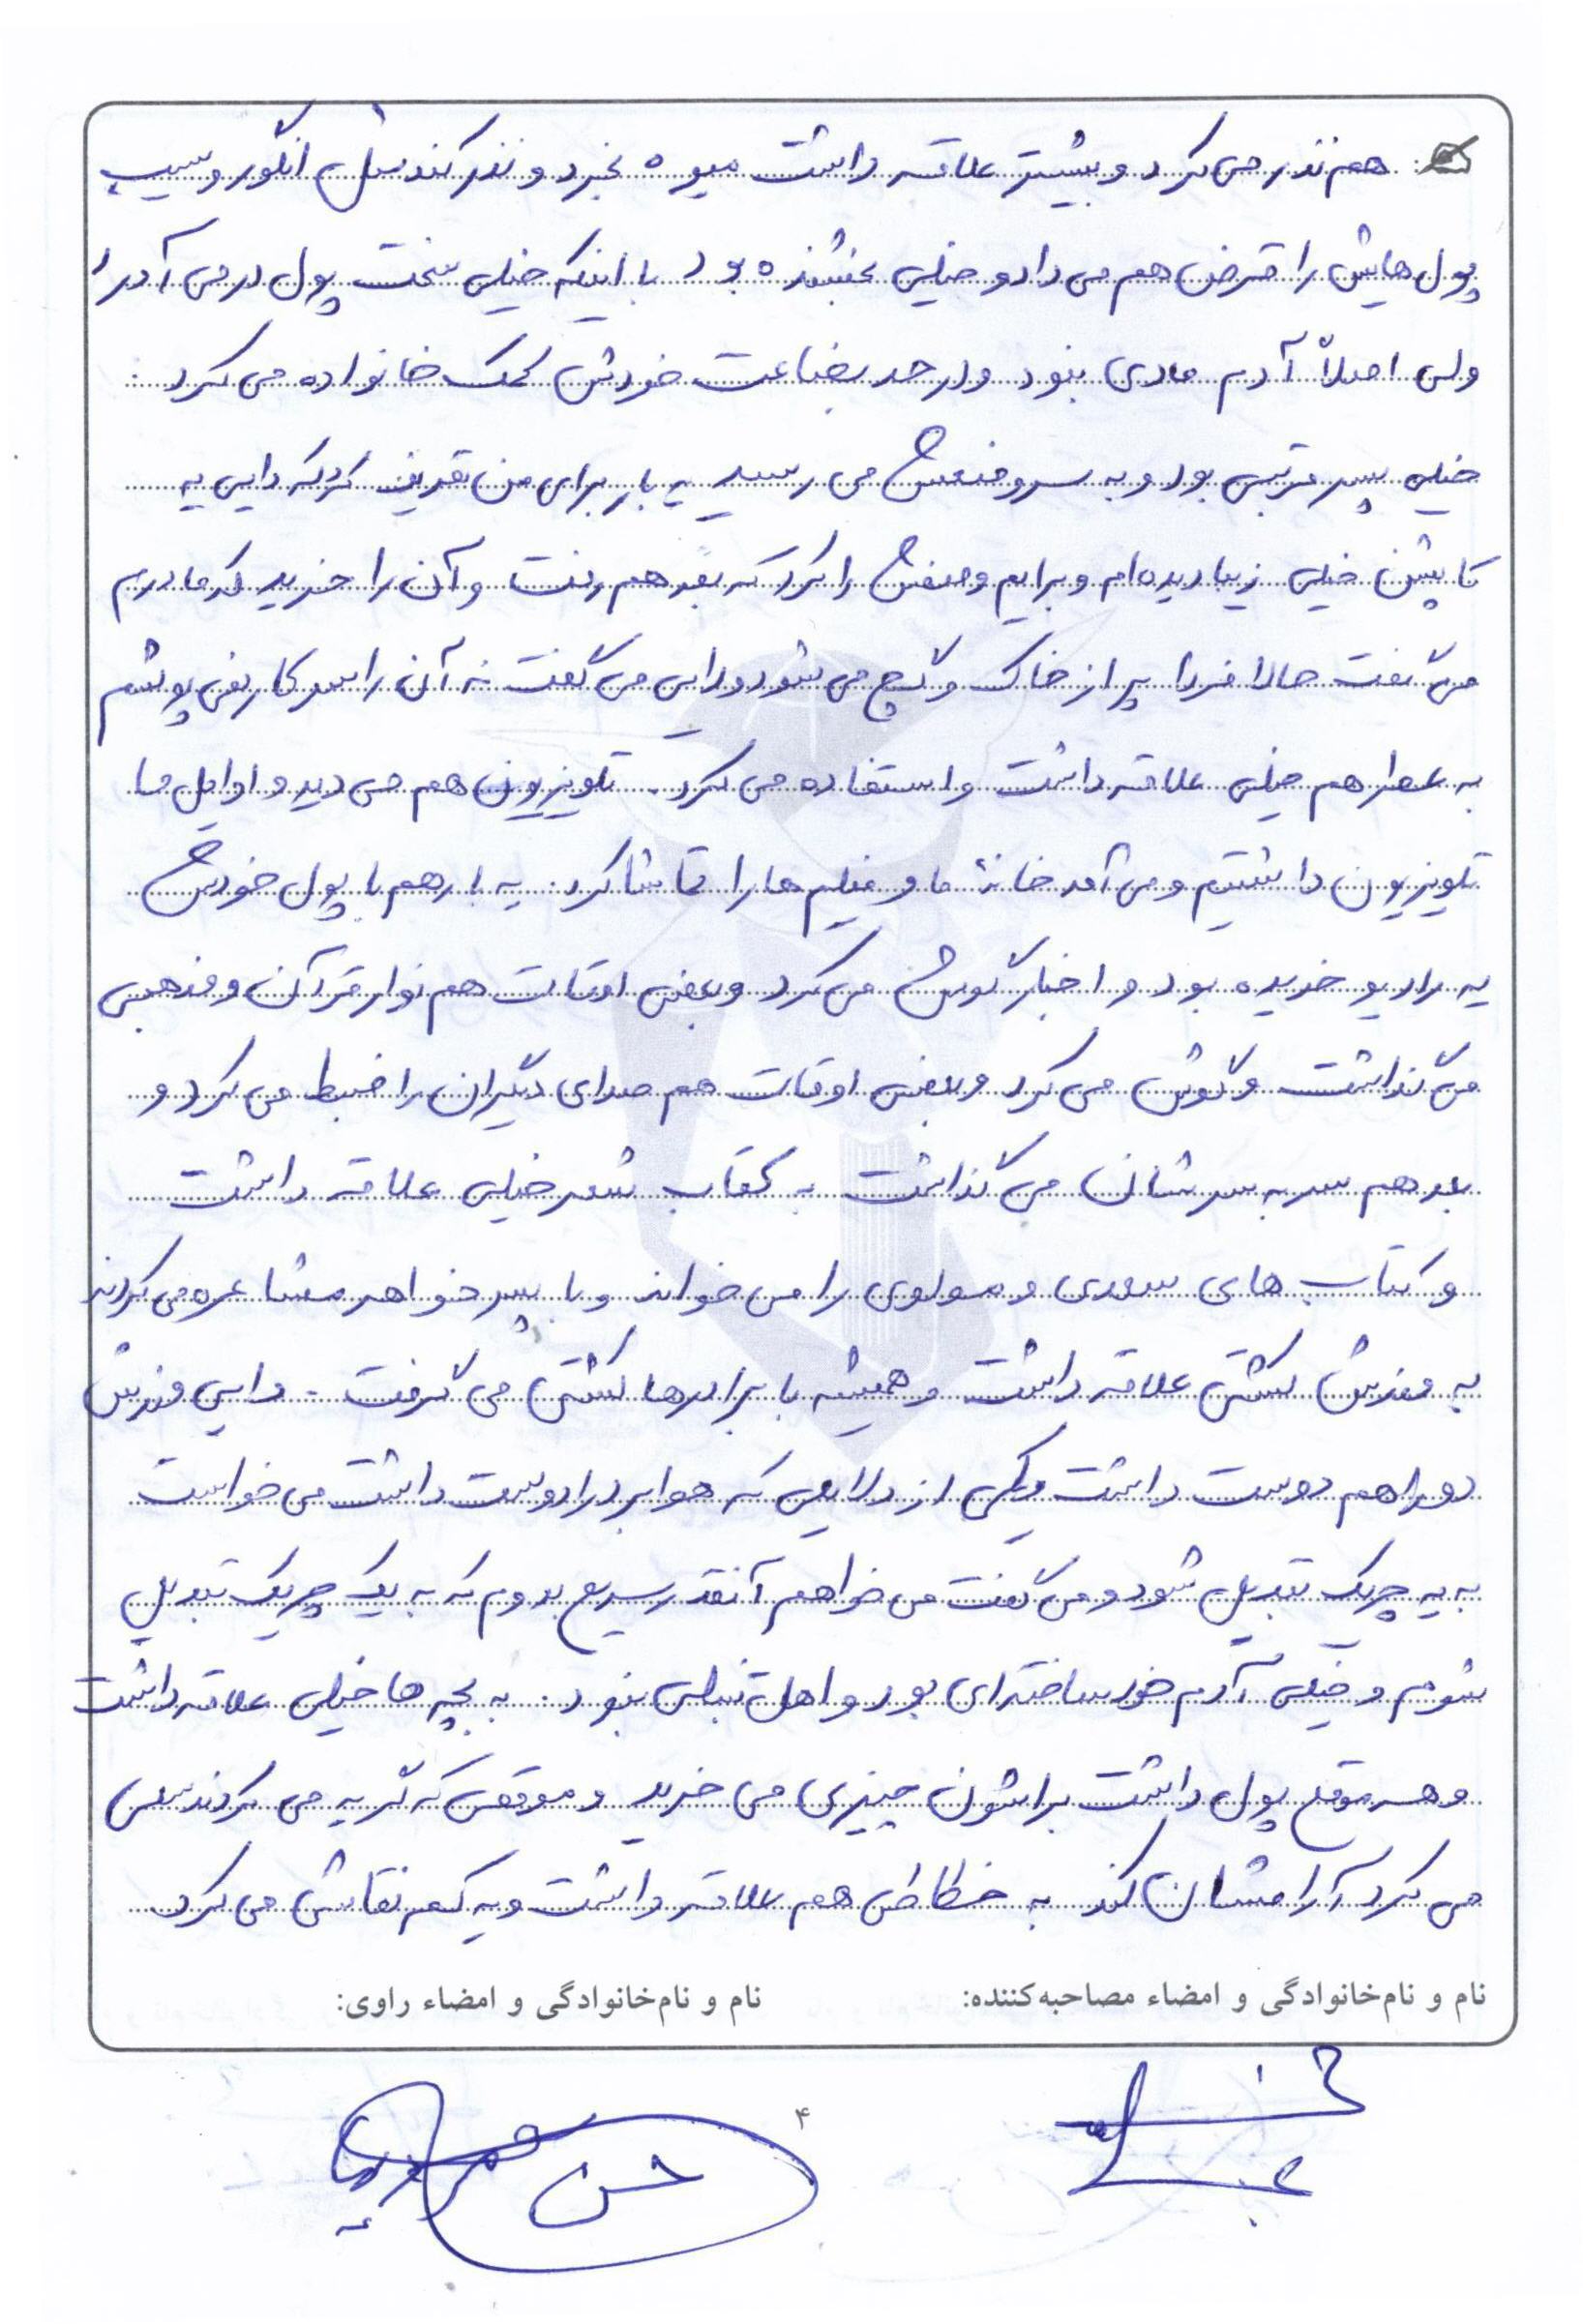 هم نذر می کرد و بیشتر علاقه داشت میوه بخرد و نذر کند مثل انگور و سیب
پول هایش را قرض هم می داد و خیلی بخشنده بود با اینکه خیلی سخت پول در می آورد
ولی اصلاً آدم مادی نبود و در حد بضاعت خودش کمک خانواده می کرد.
خیلی پسر مرتبی بود و به سر و وضعش می رسید یه بار برای من تعریف کرد که دایی یه
کاپشن خیلی زیبا دیده ام و برایم وصفش را کرد که بعد هم رفت و آن را خرید که مادرم
می گفت حالا فردا پر از خاک و گچ می شود و دایی می گفت نه آن را سر کار نمی پوشم
به عطر هم خیلی علاقه داشت و استفاده می کرد. تلویزیون هم می دید و اوایل ما
تلویزیون داشتیم و می آمد خانه ما و فیلم ها را تماشا کرد. یه بار هم با پول خودش
یه رادیو خریده بود و اخبار گوش می کرد و بعضی اوقات هم نوار قرآن و مذهبی
می گذاشت و گوش می کرد و بعضی اوقات هم صدای دیگران را ضبط می کرد و
بعد هم سر به سرشان می گذاشت به کتاب شعر خیلی علاقه داشت
و کتاب های سعدی و مولوی را می خواند و با پسر خواهر مشاعره می کردند
به ورزش کشتی علاقه داشت و همیشه با برادرها کشتی می گرفت. دایی ورزش
دو را هم دوست داشت و یکی از دلایلی که هوابرد را دوست داشت می خواست
به یه چریک تبدیل شود و می گفت می خواهم آنقدر سریع بدوم که به یک چریک تبدیل
شوم و خیلی آدم خودساخته ای بود و اهل تنبلی نبود. به بچه ها خیلی علاقه داشت
و هر موقع پول داشت براشون چیزی می خرید و موقعی که گریه می کردند سعی
می کرد آرامشان کند به خطاطی هم علاقه داشت و یه کم نقاشی می کرد
نام و نام‌خانوادگی و امضاء مصاحبه‌کننده: نام و نام‌خانوادگی و امضاء راوی:
۴
حسن